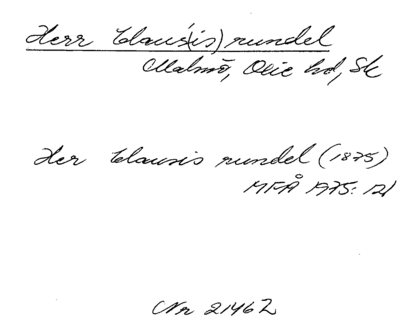 Herr Claus(is) rundel
Malmö, Oxie hd, Sk
Her Clausis rundel (1875)
MFÅ 1975: 121
Nr 21462